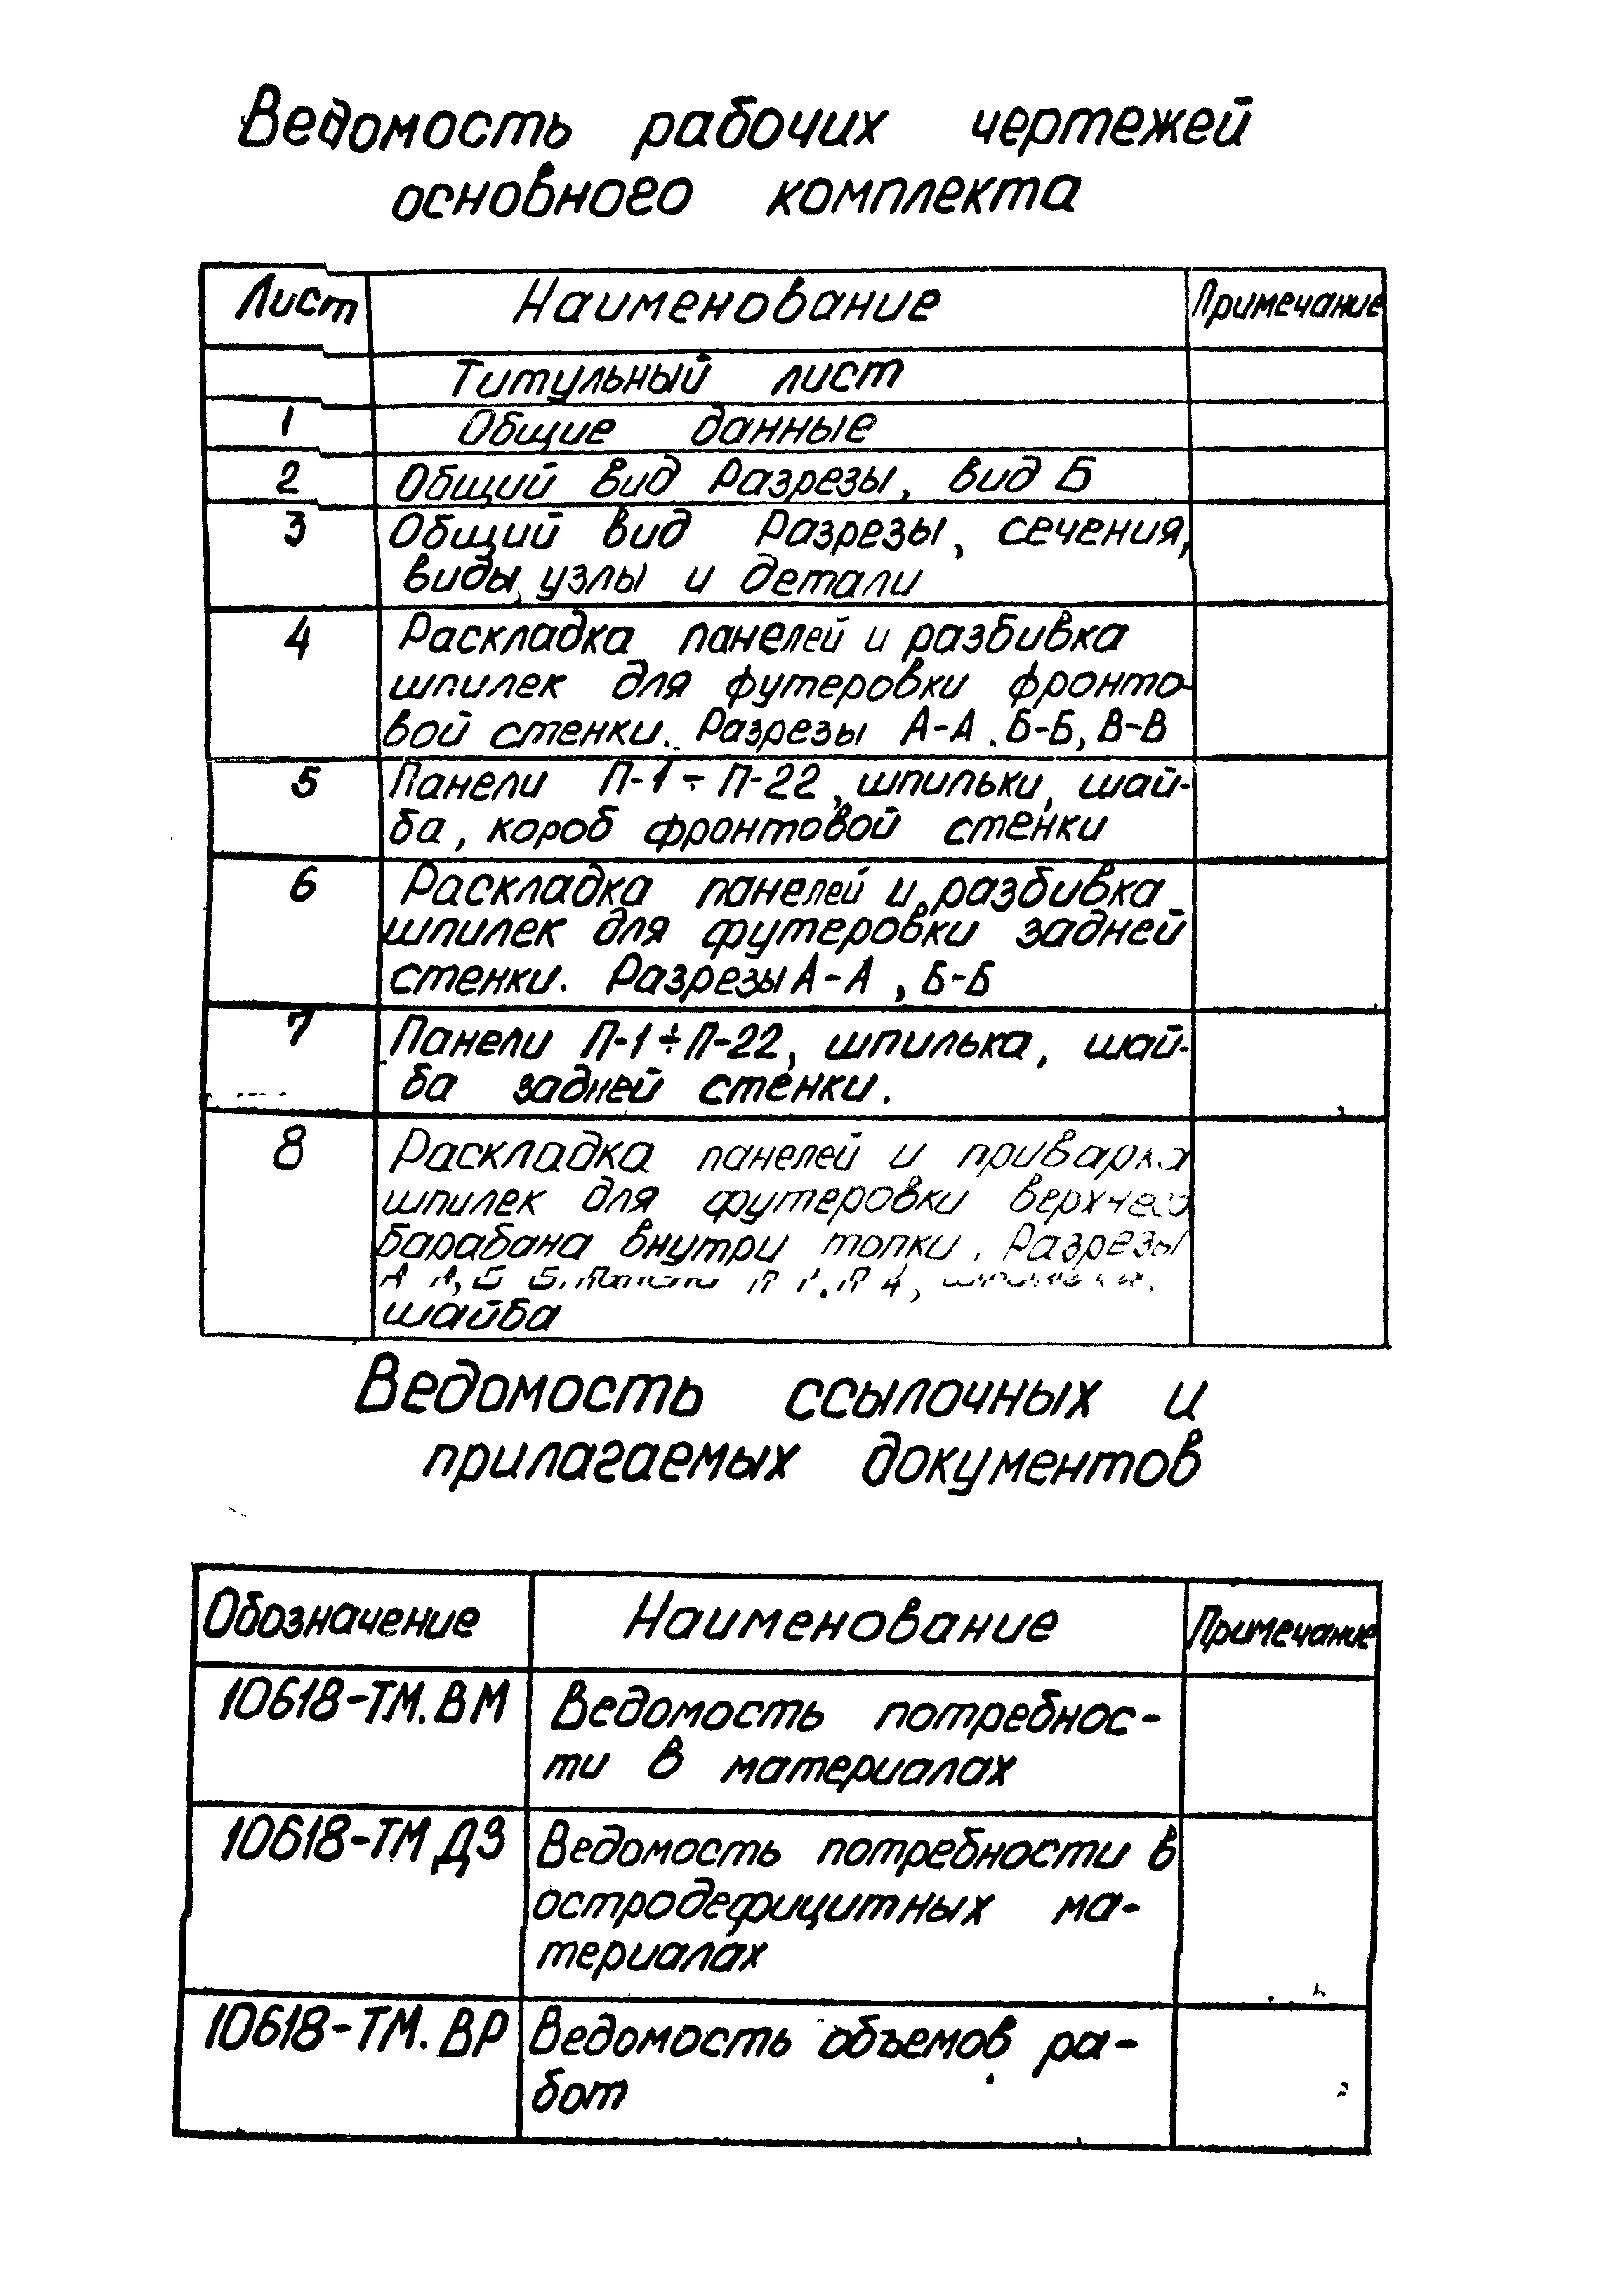 Ведомость рабочих чертежей
основного комплекта
Лист Наименование Примечание
Титульный лист
1 Общие данные
2 Общий вид Разрезы, вид Б
3 Общий вид Разрезы, сечения,
виды, узлы и детали
4 Раскладка панелей и разбивка
шпилек для футеровки фронто-
вой стенки. Разрезы А-А, Б-Б, В-В
5 Панели П-1÷П-22, шпильки, шай-
ба, короб фронтовой стенки
6 Раскладка панелей и разбивка
шпилек для футеровки задней
стенки. Разрезы А-А, Б-Б
7 Панели П-1÷П-22, шпилька, шай-
ба задней стенки.
8 Раскладка панелей и приварка
шпилек для футеровки верхнего
барабана внутри топки. Разрезы
шайба
Ведомость ссылочных и
прилагаемых документов
Обозначение Наименование Примечание
10618-ТМ.ВМ Ведомость потребнос-
ти в материалах
10618-ТМ ДЗ Ведомость потребности в
остродефицитных ма-
териалах
10618-ТМ.ВР Ведомость объемов ра-
бот